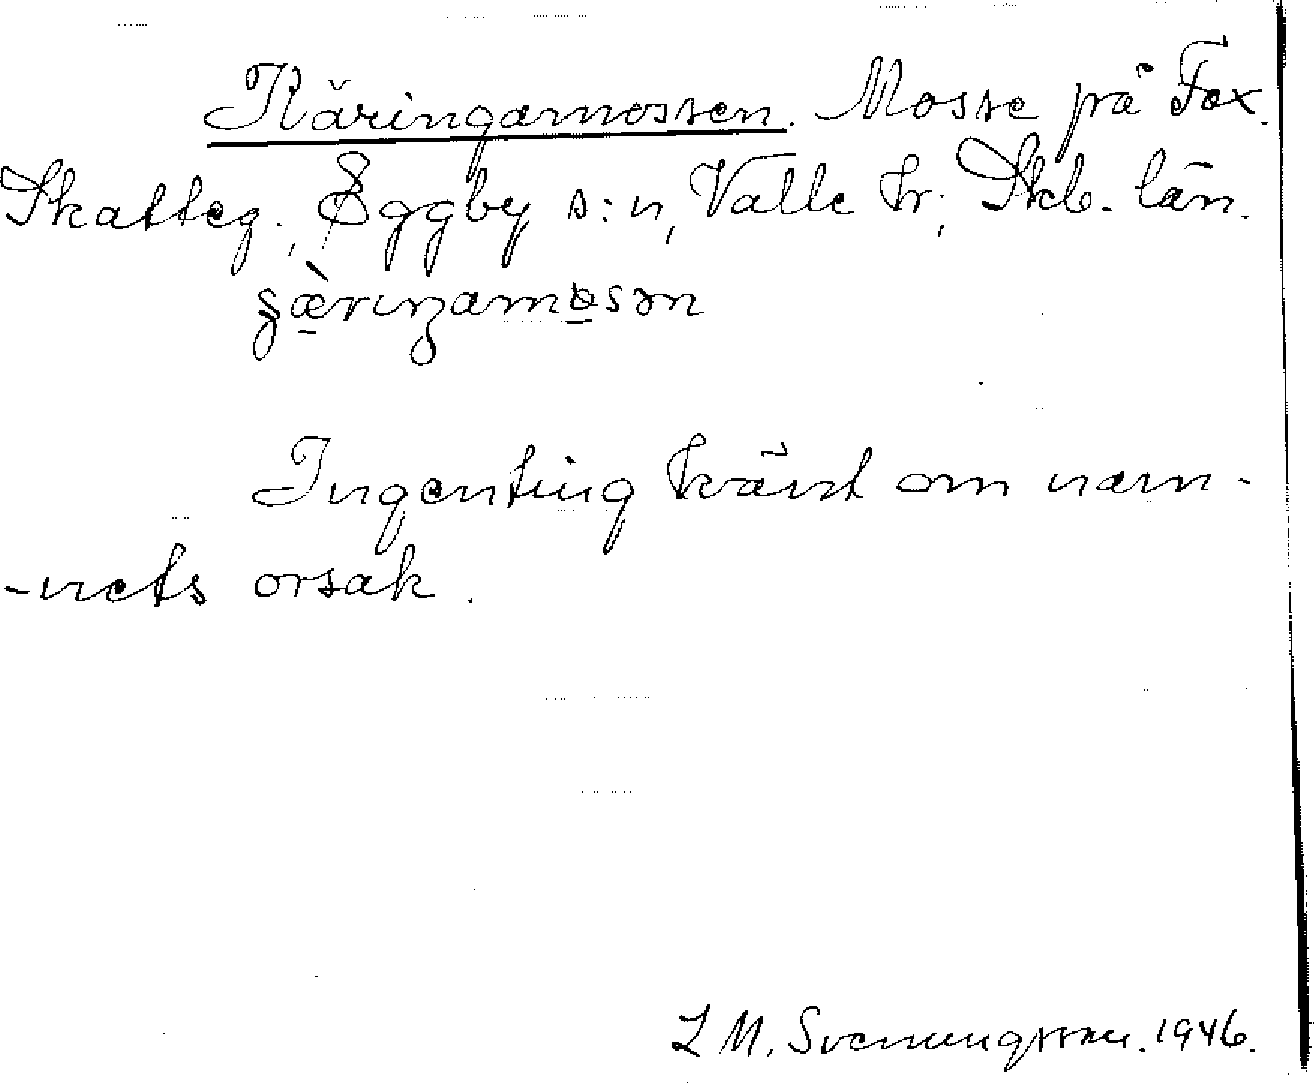 Käringamossen. Mosse på Fox.
Skatteg., Eggby s:n, Valle hr, Skb. län.
Ingenting känt om nam-
-nets orsak.
L M. Svenungsson. 1946.